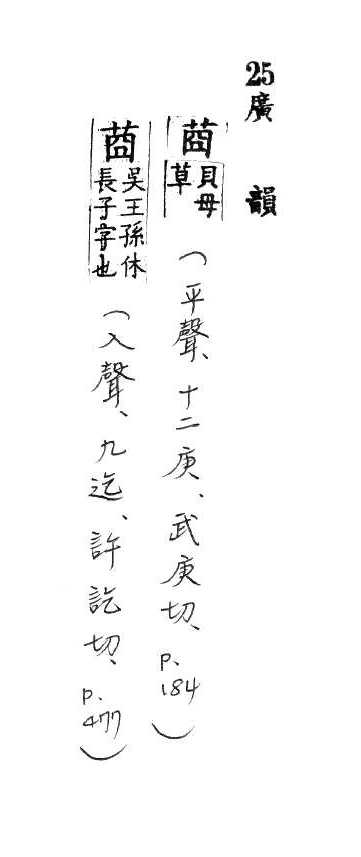 25廣 韻
莔 貝母草 (平聲、十二庚、武庚切、p.184)
莔 吳王孫休長子字也 (入聲、九迄、許訖切、p.477)